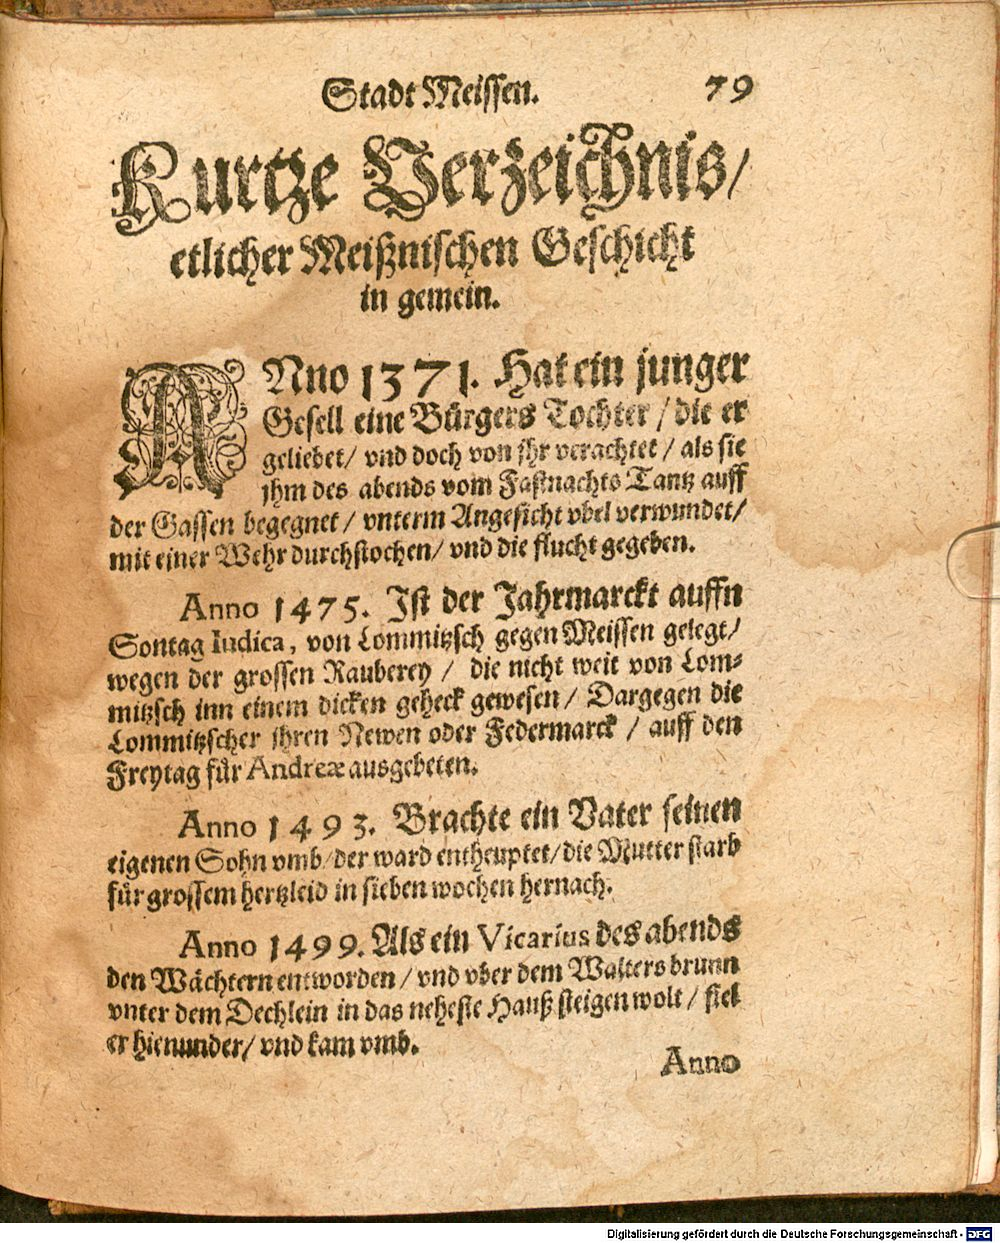 Stadt Meissen. 79
Kurtze Verzeichnis/
etlicher Meißnischen Geschicht
in gemein.
ANno 1371. Hat ein junger
Gesell eine Bürgers Tochter / die er
geliebet/ vnd doch von jhr verachtet / als sie
jhm des abends vom Fastnachts Tantz auff
der Gassen begegnet / vnterm Angesicht vbel verwundet/
mit einer Wehr durchstochen/ vnd die flucht gegeben.
Anno 1475. Ist der Jahrmarckt auffn
Sontag Iudica, von Lommitzsch gegen Meissen gelegt/
wegen der grossen Rauberey / die nicht weit von Lom-
mitzsch inn einem dicken geheck gewesen / Dargegen die
Lommitzscher jhren Newen oder Federmarck / auff den
Freytag für Andreæ ausgebeten.
Anno 1493. Brachte ein Vater seinen
eigenen Sohn vmb/der ward entheuptet/die Mutter starb
für grossem hertzleid in sieben wochen hernach.
Anno 1499. Als ein Vicarius des abends
den Wächtern entworden / vnd vber dem Walters brunn
vnter dem Dechlein in das neheste Hauß steigen wolt / fiel
er hienunder/ vnd kam vmb.
Anno
Digitalisierung gefördert durch die Deutsche Forschungsgemeinschaft - DFG